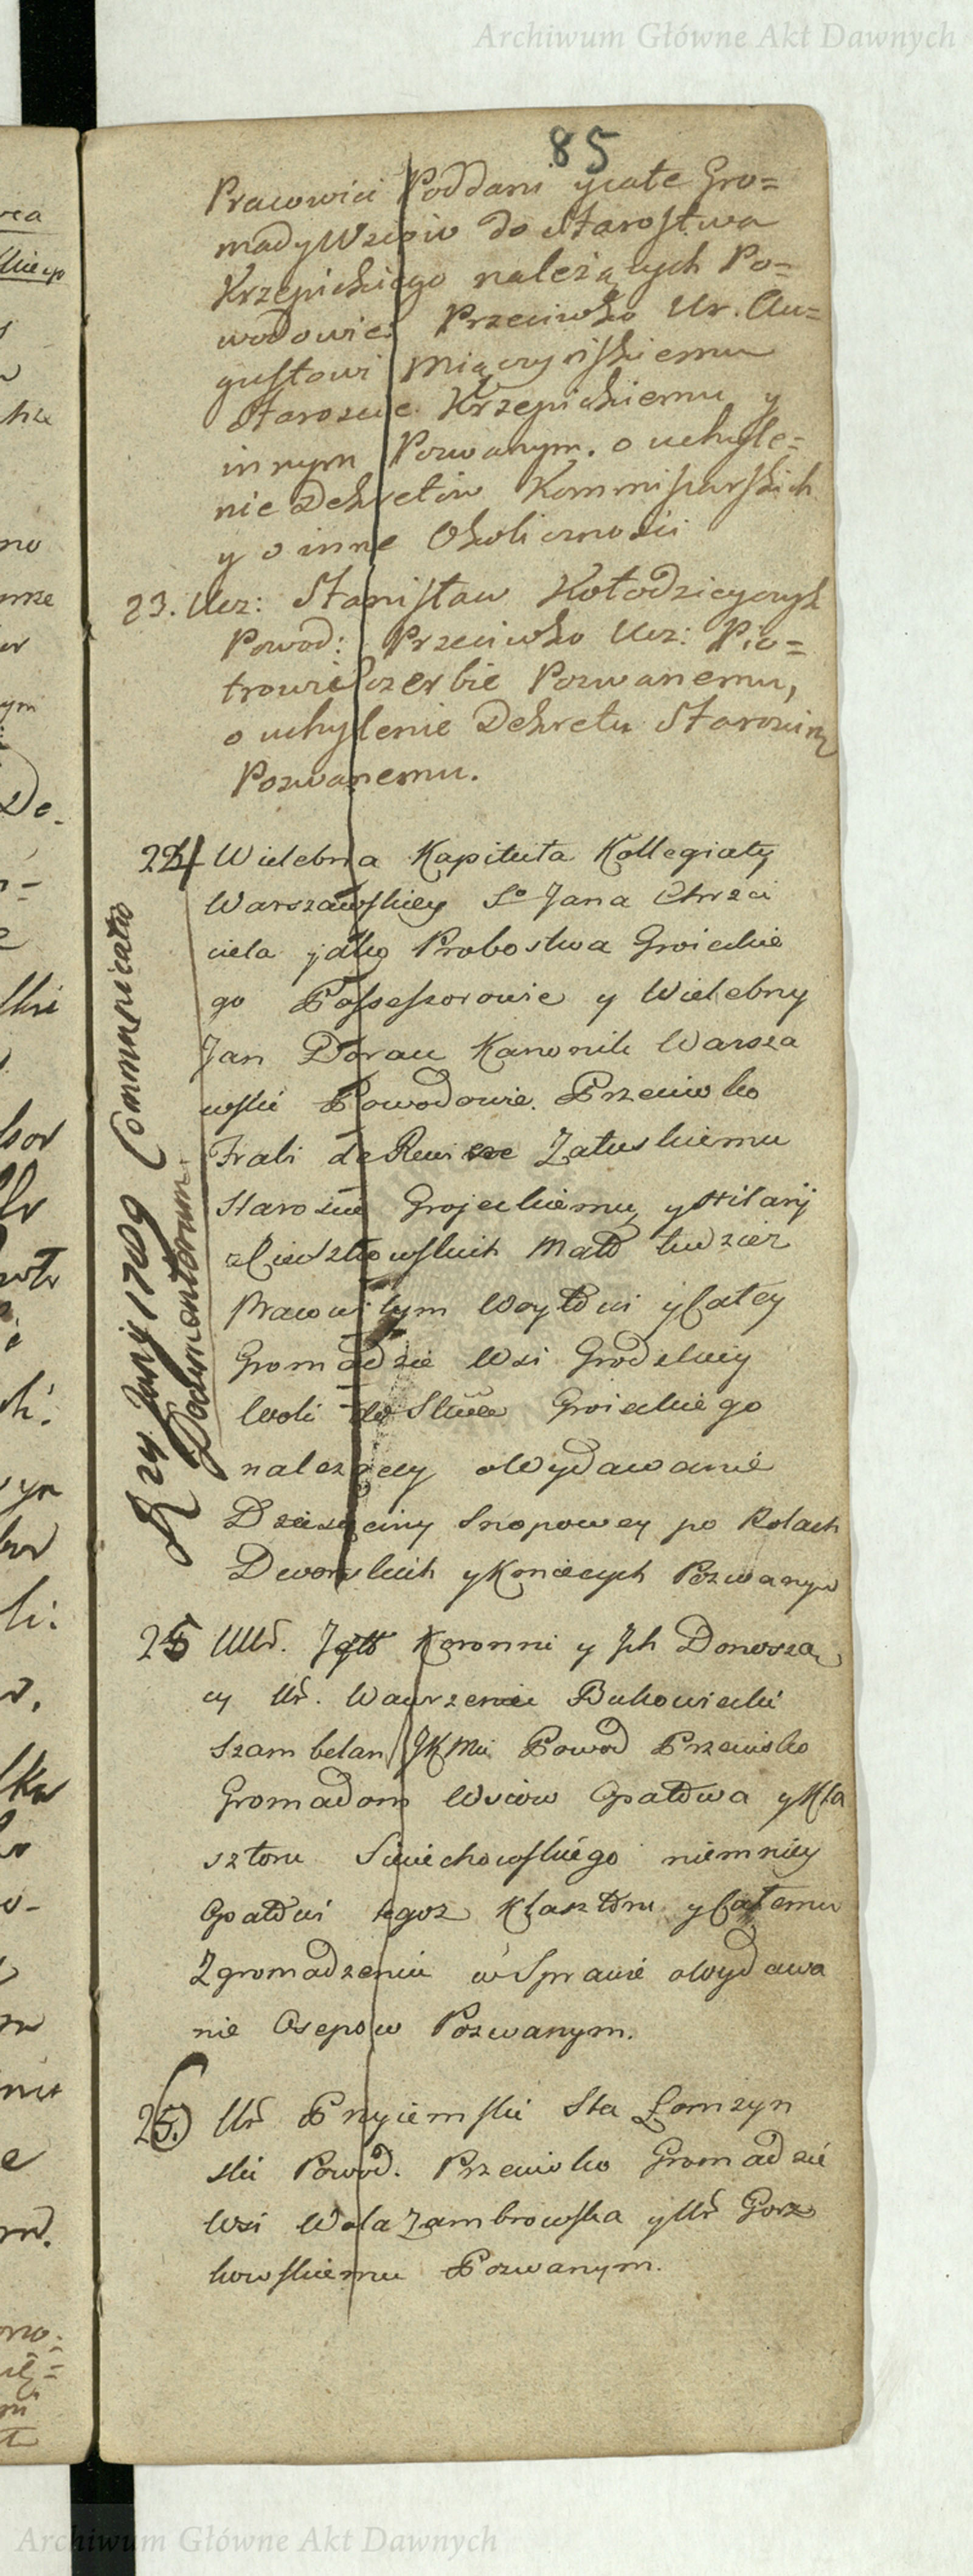 Archiwum Główne Akt Dawnych
85
Pracowici Poddani y całe Gro=
mady Wsiow do Starostwa
Krzepickiego należących Po=
wodowie Przeciwko Ur. Au=
gustowi Miączyńskiemu
Staroscie Krzepickiemu y
innym Pozwanym. o uchyle=
nie Dekretow Kommissarskich
y o inne Okoliczności
23. Ucz: Stanisław Kołodzieyczyk
Powod: Przeciwko Ucz: Pio=
trowi Szerbie Pozwanemu,
o uchylenie Dekretu
Pozwanemu.
24 Wielebna Kapituła Kollegiaty
Warszawskiey So Jana Chrzci
ciela jako Probostwa Groieckie
go Possessorowie y Wielebny
Jan Kanonik Warsza
wski Powodowie. Przeciwko
Załuskiemu
Staroscie Grojeckiemu y Hilarij
Małż tudzież
Pracowitym Woytowi y Całey
Gromadzie Wsi Grodzkiey
Woli do Groieckiego
należącey o Wydawanie
Dziesięciny Snopowey po Rolach
Dworskich y Kmiecych Pozwanym
29 Junij 1789 Communicatio
Documentorum.
25 Koronni y Jch Donosżą
cy Ur. Wawrzeniec Bukowiecki
Szambelan JKMci Powod Przeciwko
Gromadom Wsiow Opactwa y Kla
sztoru Sieciechowskiego niemniey
Opatowi tegoż Klasztoru y Całemu
Zgromadzeniu w Sprawie o Wydawa
nie Osepow Pozwanym.
26. Ur Przyiemski Sta Łomzyn
ski Powod. Przeciwko Gromadzie
Wsi Wola Zambrowska y Ur Gorz
kowskiemu Pozwanym.
Archiwum Główne Akt Dawnych